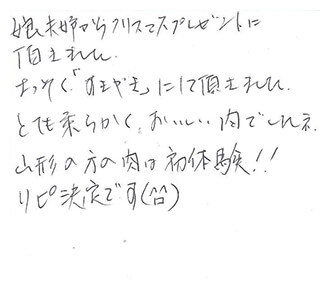 娘夫婦からクリスマスプレゼントに
頂きました.
さっそく「すきやき」にして頂きました.
とても柔らかく、おいしい肉でしたネ.
山形の方の肉は初体験!!
リピ決定です(^^)